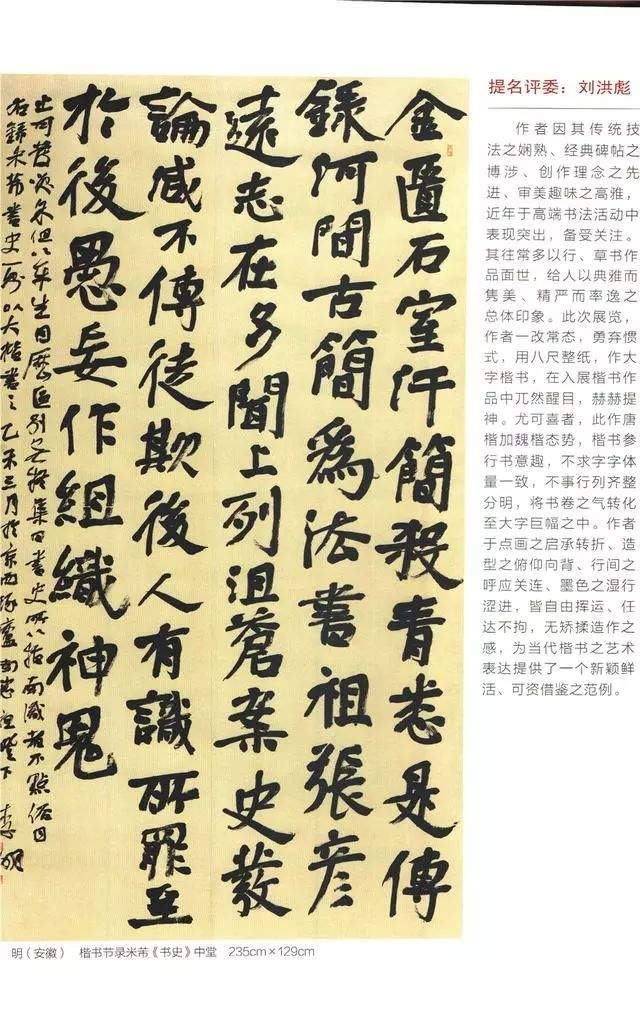 金匱石室汗簡殺青悉是傳
錄河間古簡爲法書祖張彦
遠志在多聞上列沮蒼案史發
論咸不傳徒欺後人有識所罪至
於後愚妄作組織神鬼
止可發笑余但以平生目歷區別無疑集曰書史所以指南識者不點俗目
右錄米芾書史一則以大楷書之乙未三月於京西 李明
明（安徽） 楷书节录米芾《书史》中堂 235cm×129cm
提名评委：刘洪彪
作者因其传统技
法之娴熟、经典碑帖之
博涉、创作理念之先
进、审美趣味之高雅，
近年于高端书法活动中
表现突出，备受关注。
其往常多以行、草书作
品面世，给人以典雅而
隽美、精严而率逸之
总体印象。此次展览，
作者一改常态，勇弃惯
式，用八尺整纸，作大
字楷书，在入展楷书作
品中兀然醒目，赫赫提
神。尤可喜者，此作唐
楷加魏楷态势，楷书参
行书意趣，不求字字体
量一致，不事行列齐整
分明，将书卷之气转化
至大字巨幅之中。作者
于点画之启承转折、造
型之俯仰向背、行间之
呼应关连、墨色之湿行
涩进，皆自由挥运、任
达不拘，无矫揉造作之
感，为当代楷书之艺术
表达提供了一个新颖鲜
活、可资借鉴之范例。